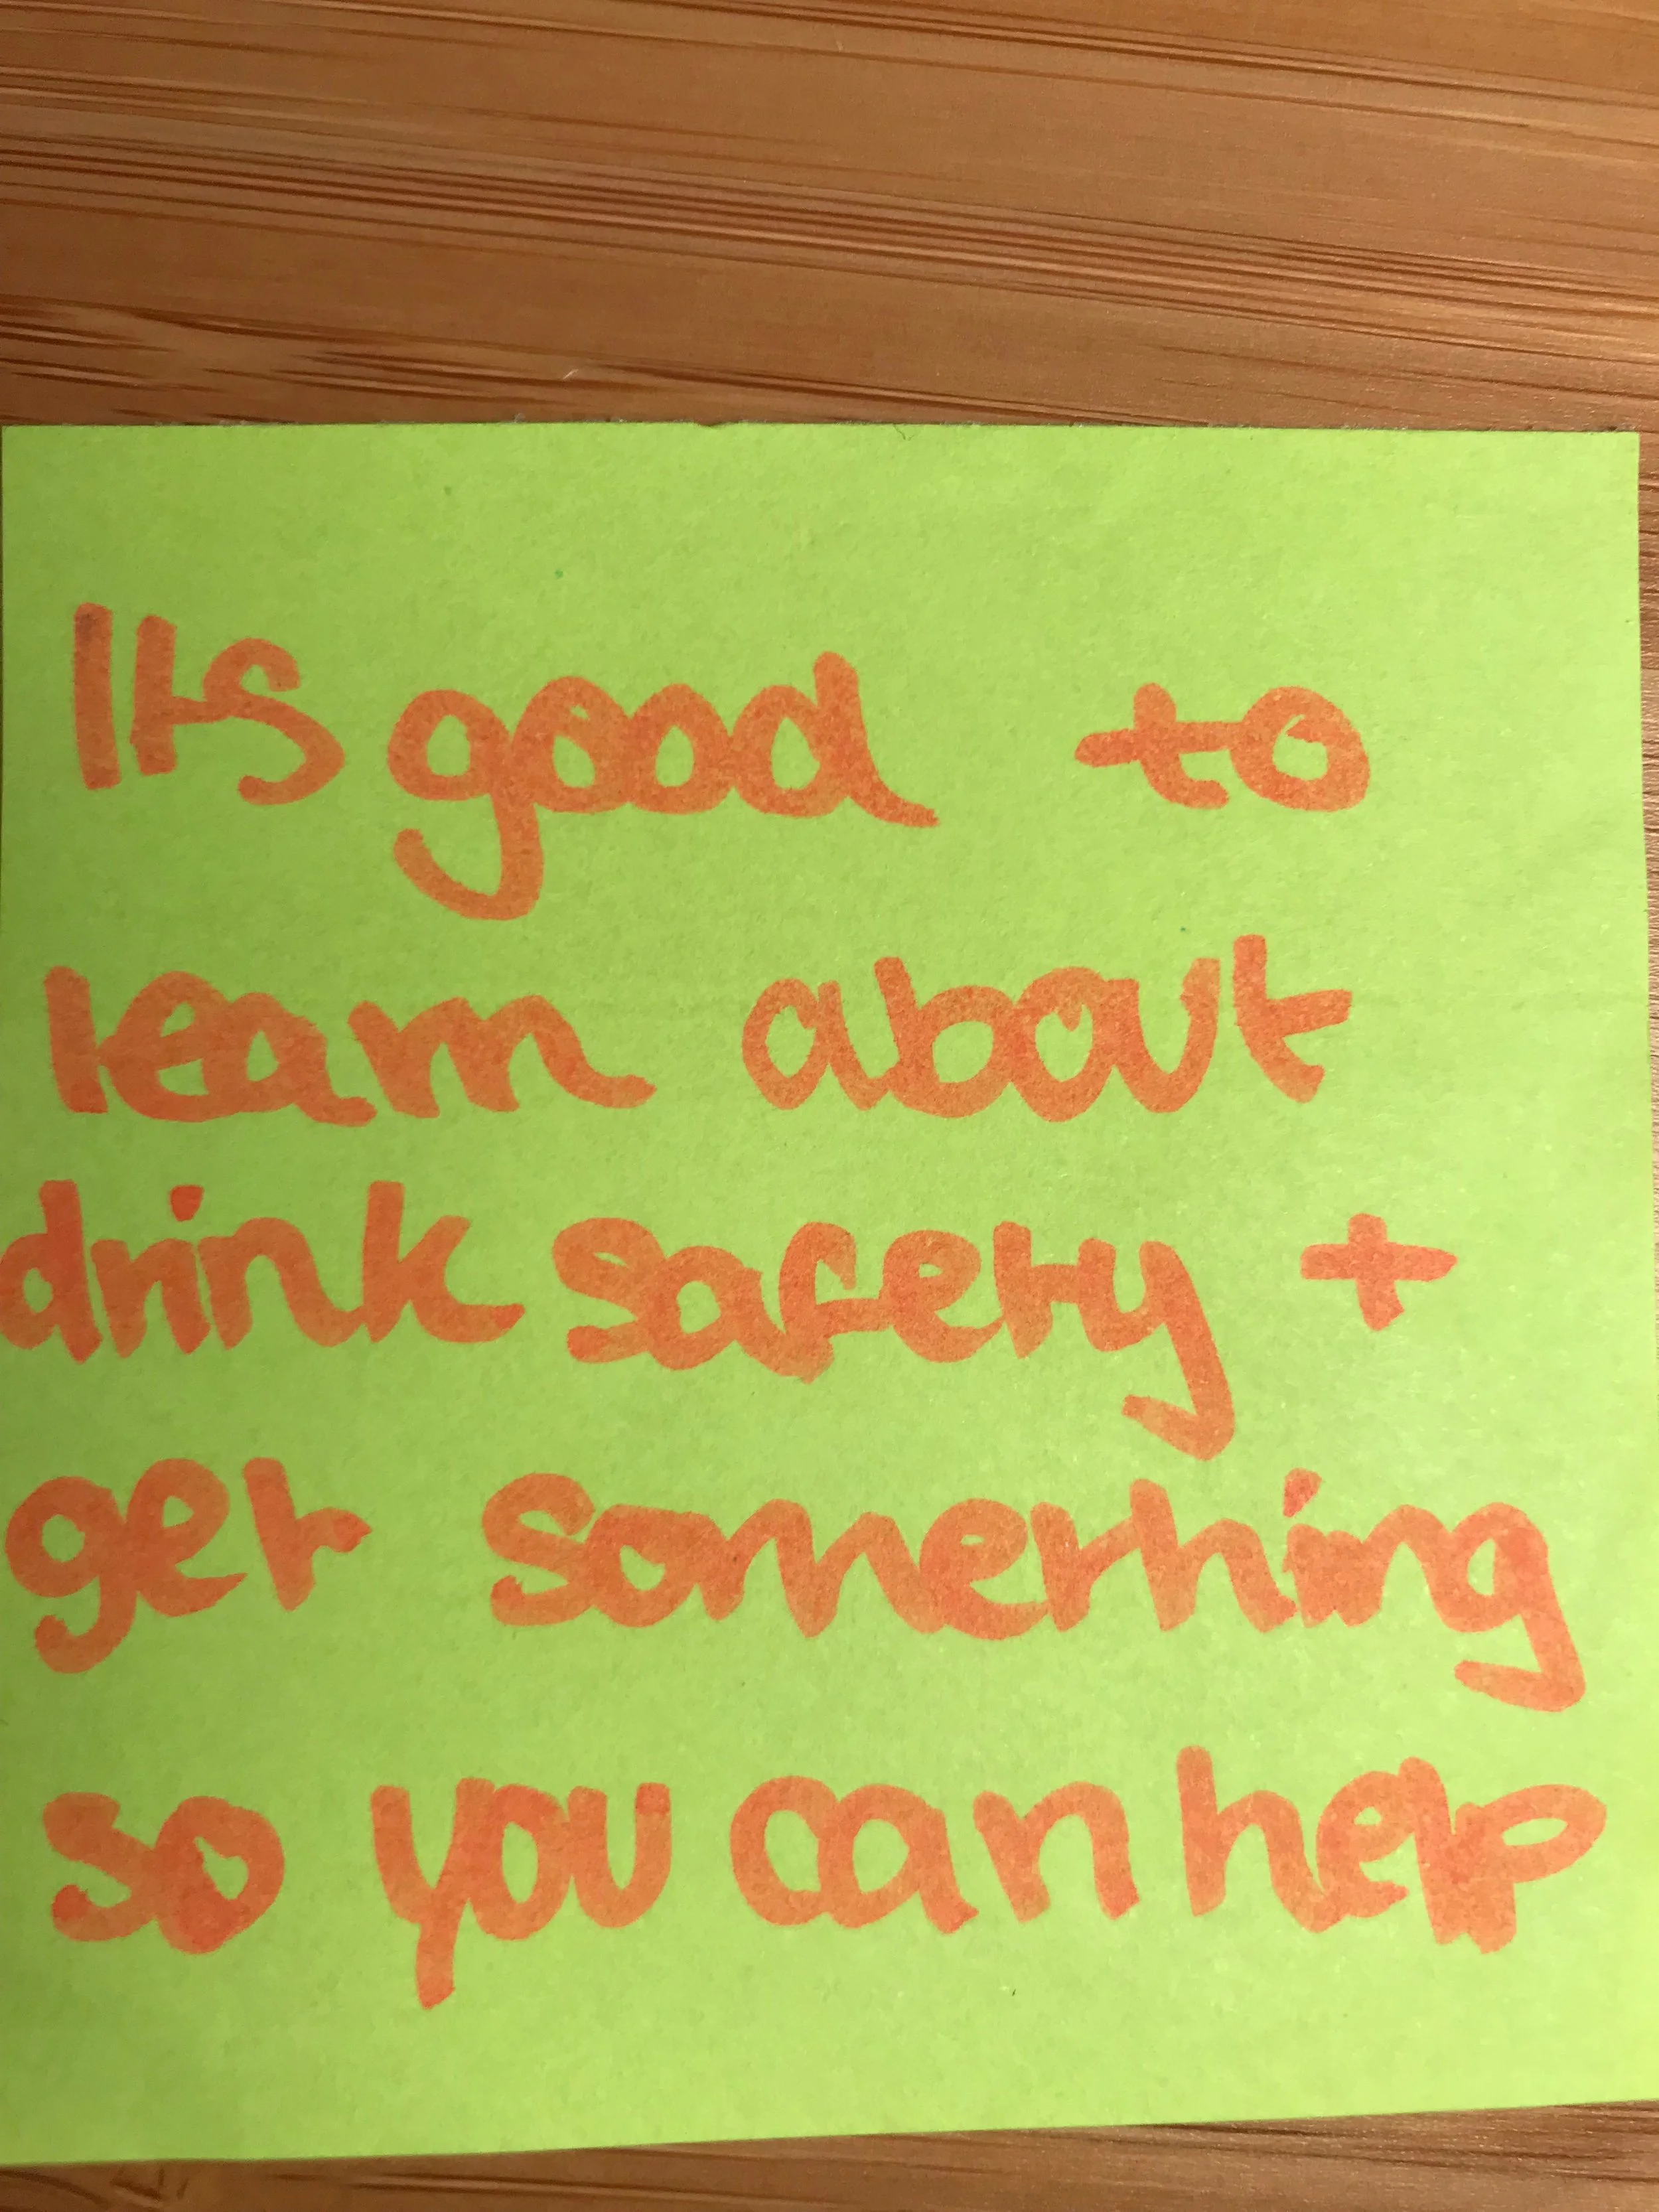 Its good to
learn about
drink safety +
get something
so you can help